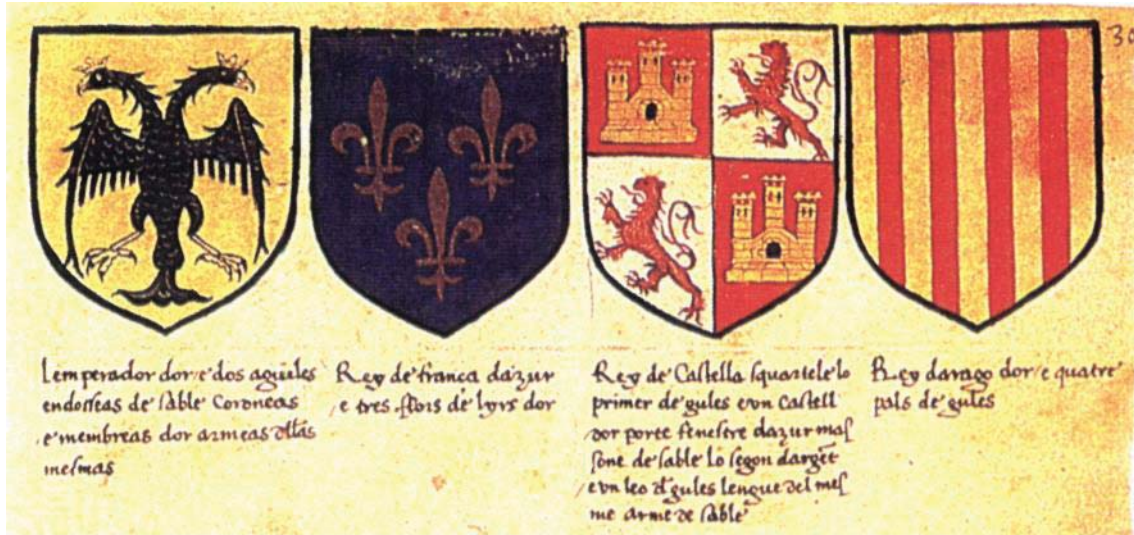 30
lemperador dor e dos aguiles
endosseas de sable Coroneas
e membreas dor armeas dllas
mesmas
Rey de franca dazur
e tres flors de lyrs dor
Rey de Castella squartele lo
primer de gules e vn Castell
dor porte fenestre dazur mas
sone de sable lo segon dargēt
e vn leo d gules lengue del mes
me arme de sable
Rey darago dor e quatre
pals de gules